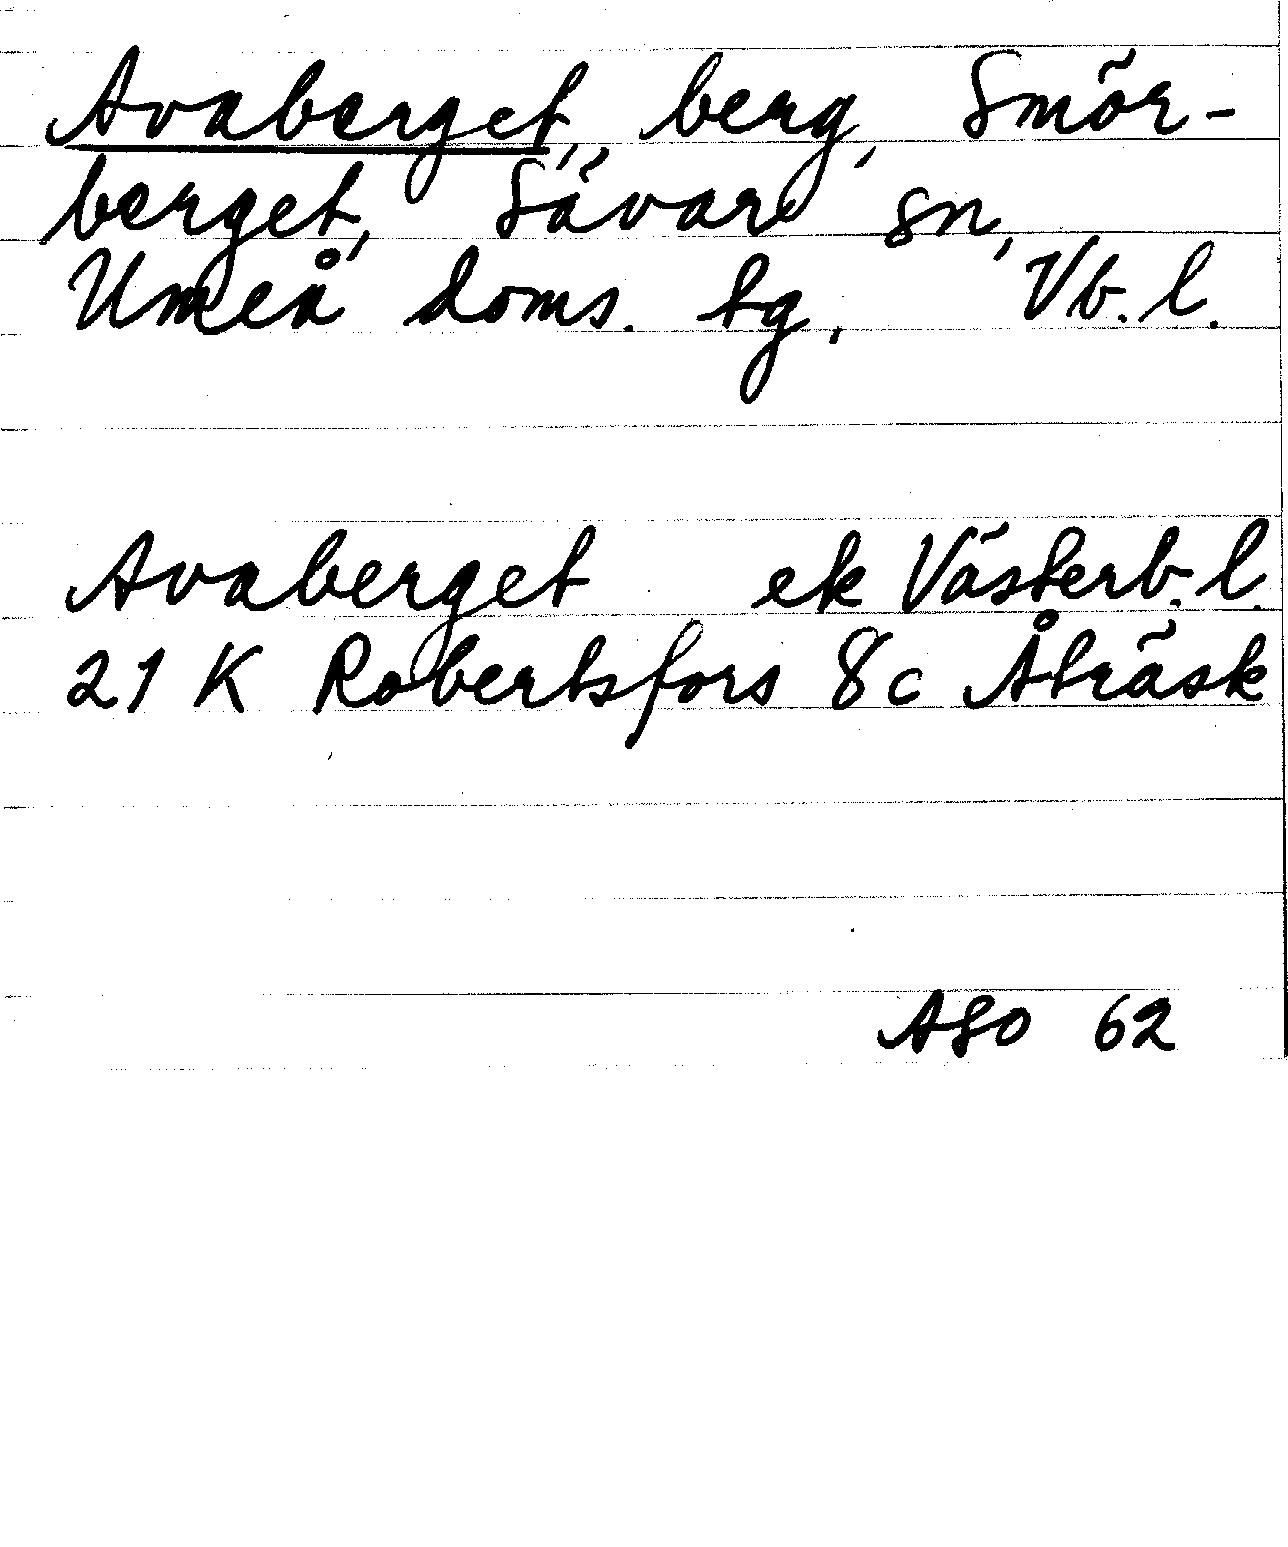 Avaberget, berg, Smör-
berget, Sävar sn,
Umeå doms. tg, Vb. l.
Avaberget ek Västerb. l.
21 K Robertsfors 8c Åträsk
ASO 62